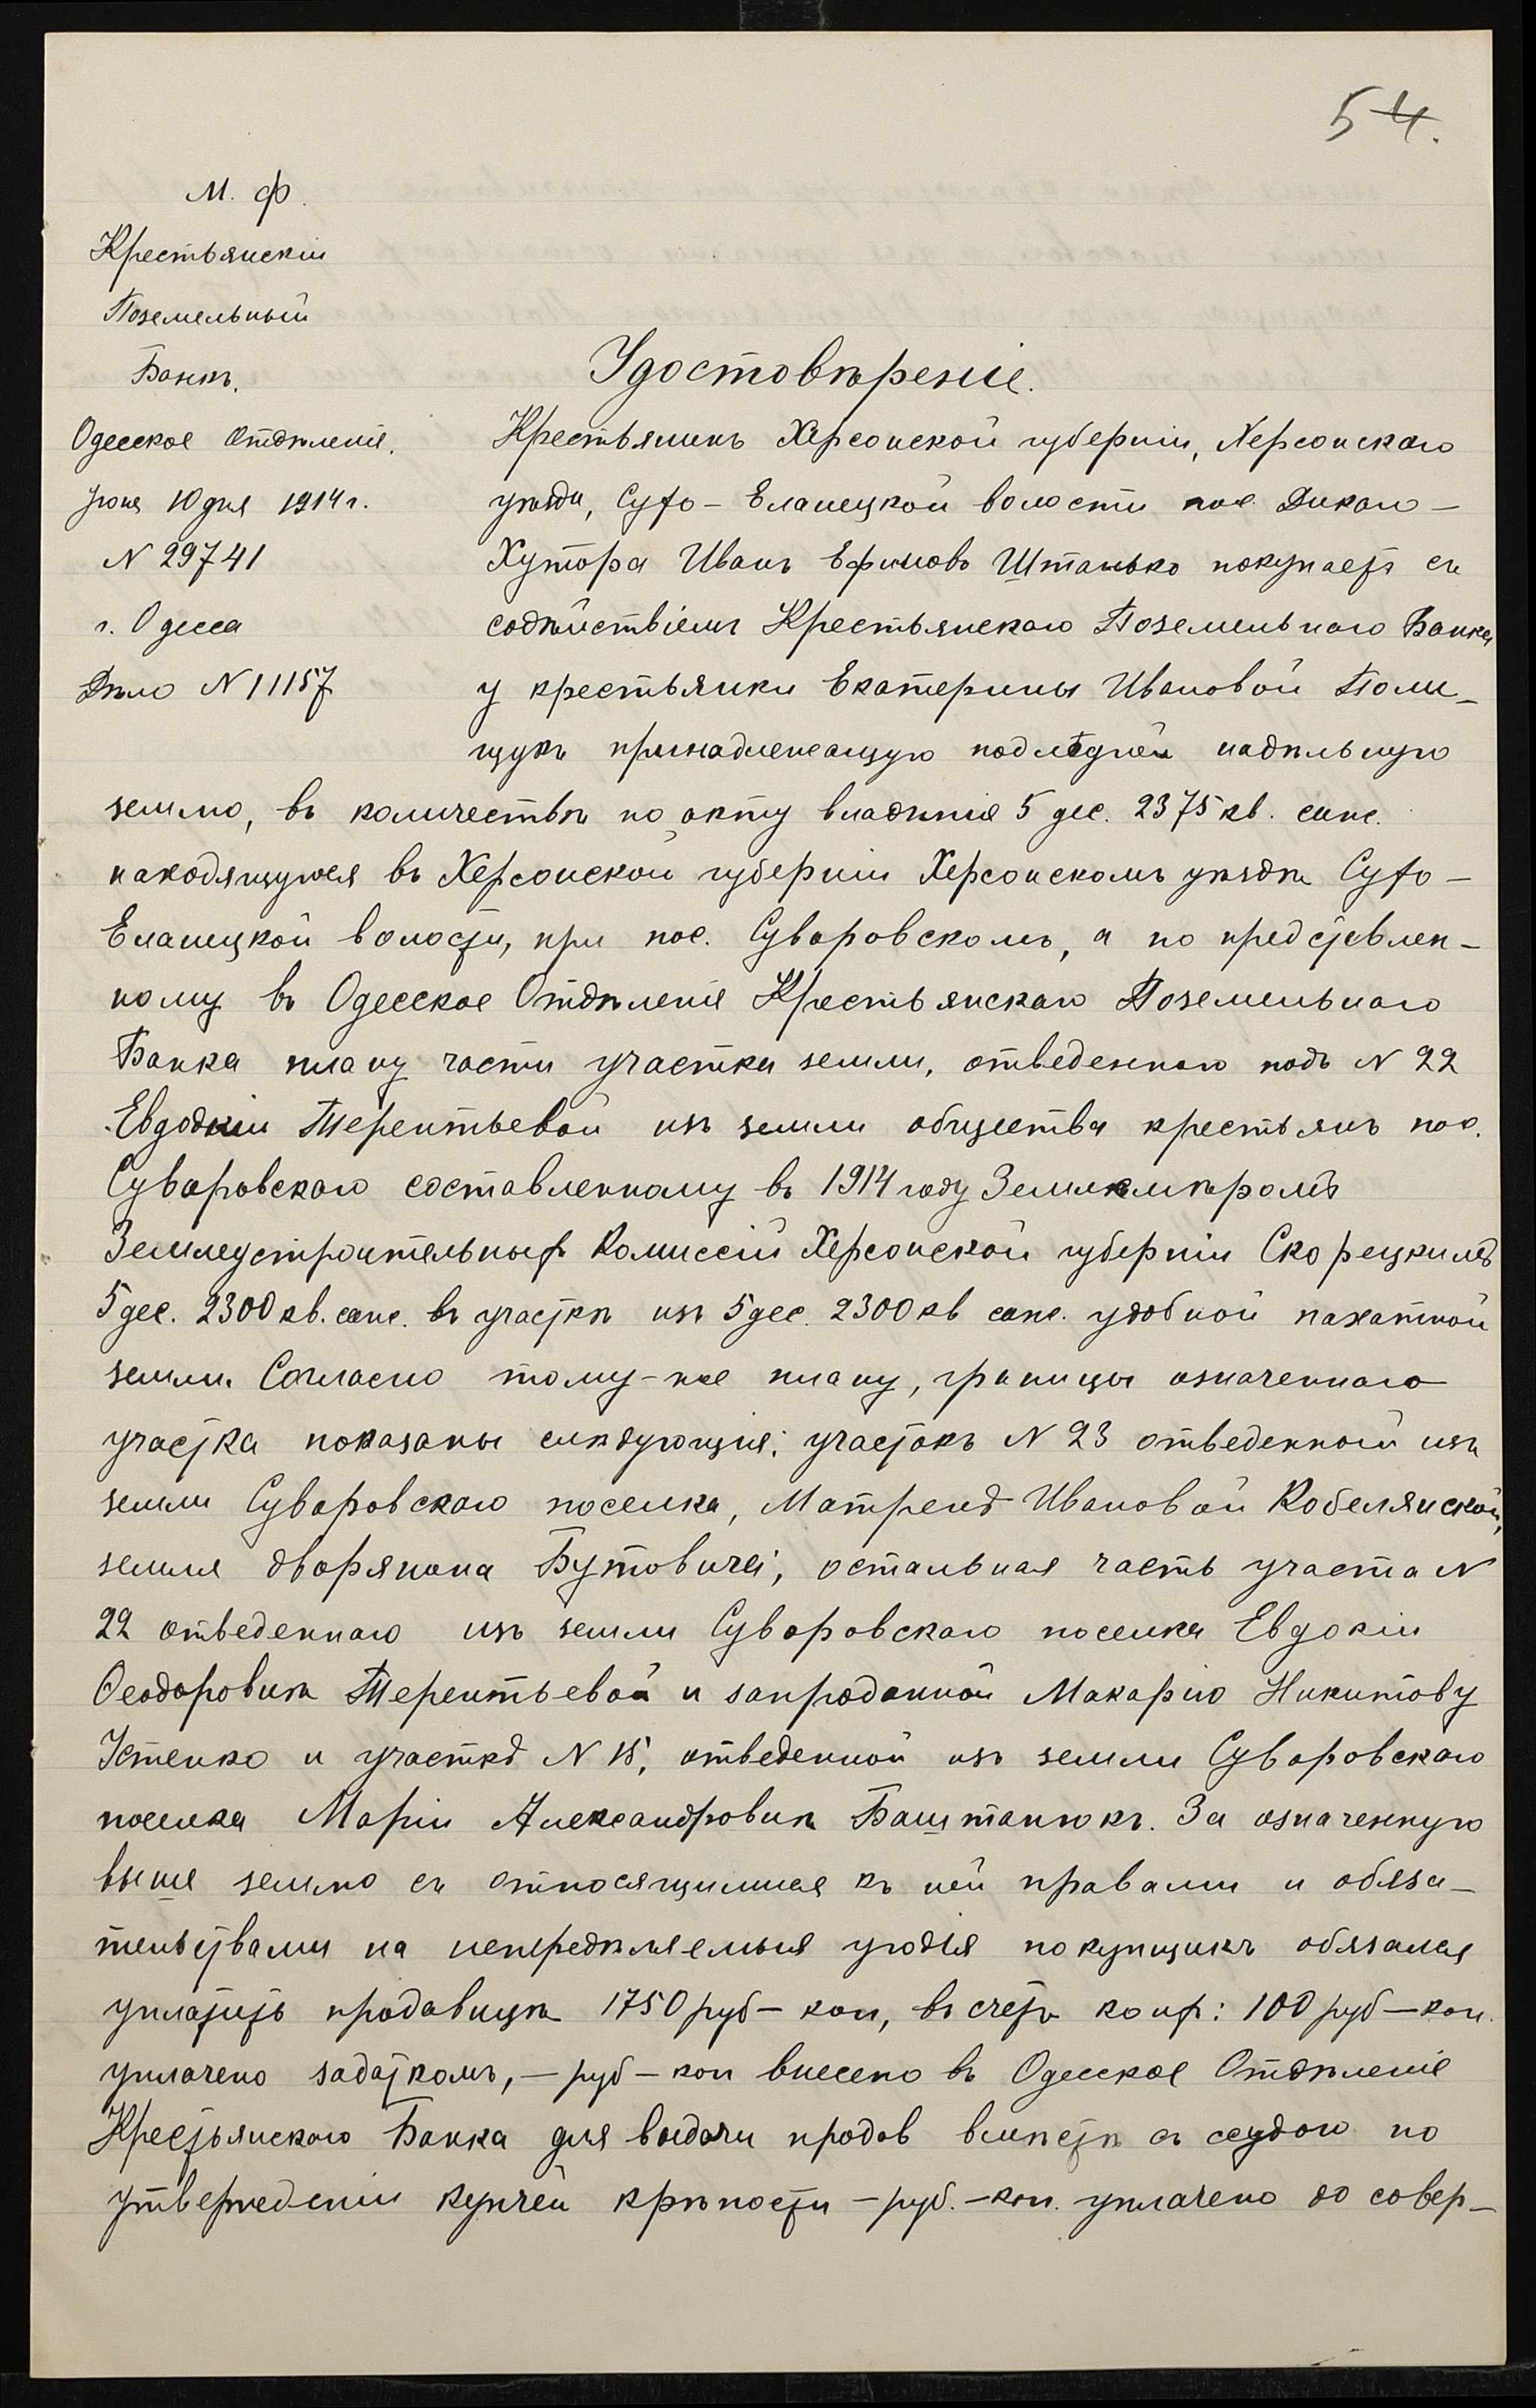 54.
М. Ф.
Крестьянскій
Поземельный
Банкъ.
Одесское Отдѣленіе.
Іюня 10 дня 1914 г.
N 29741
г. Одесса
Дѣло N 11157
Удостовѣреніе.
Крестьянинъ Херсонской губерніи, Херсонскаго
уѣзда, Сухо-Еланецкой волости пос. Дикаго-
Хутора Иванъ Ефимовъ Штанько покупаетъ съ
содѣйствіемъ Крестьянскаго Поземельнаго Банка
у крестьянки Екатерины Ивановой Поли-
щукъ принадлежащую послѣдней надѣльную
землю, въ количествѣ по акту владѣнія 5 дес. 2375 кв. саж.
находящуюся въ Херсонской губерніи Херсонскомъ уѣздѣ Сухо-
Еланецкой волости, при пос. Суворовскомъ, а по представлен-
ному въ Одесское Отдѣленіе Крестьянскаго Поземельнаго
Банка плану части участка земли, отведеннаго подъ N 22
Евдокіи Терентьевой изъ земли общества крестьянъ пос.
Суворовскаго составленному въ 1914 году Землемѣромъ
Землеустроительныхъ Комиссій Херсонской губерніи Скорецкимъ
5 дес. 2300 кв. саж. въ участкѣ изъ 5 дес. 2300 кв саж. удобной пахатной
земли. Согласно тому-же плану, границы означеннаго
участка показаны слѣдующія: участокъ N 23 отведенной изъ
земли Суворовскаго поселка, Матренѣ Ивановой Кобелянской,
земля дворянина Бутовича, остальная часть участа N
22 отведеннаго изъ земли Суворовскаго поселка Евдокіи
Ѳеодоровнѣ Терентьевой и запроданной Макарію Никитову
Устенко и участкъ N 15, отведенной изъ земли Суворовскаго
поселка Маріи Александровнѣ Баштанюкъ. За означенную
выше землю съ относящимися къ ней правами и обяза-
тельствами на непередѣляемыя угодія покупщикъ обязался
уплатить продавицѣ 1750 руб – коп, въ счетъ коих: 100 руб – коп.
уплачено задаткомъ, – руб – коп внесено въ Одесское Отдѣленіе
Крестьянскаго Банка для выдачи продав вмѣстѣ съ ссудою по
утвержденіи купчей крѣпости – руб. – коп. уплачено до совер-